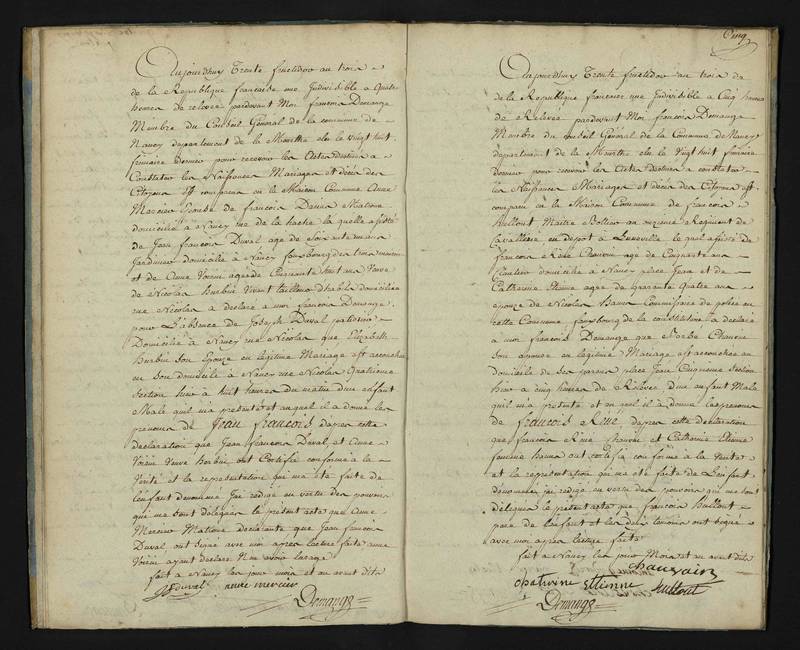 Aujourdhuy Trente fructidor an trois
de la Republique francaise une Indivisible a Quatre
heures de relevée pardevant Moi francois Domange
Membre du Conseil Général de la commune de
Nancy departement de la Meurthe elu le vingt huit
frimaire dernier pour recevoir les Actes destinés a
Constater les Naissances Mariages et décès des
Citoyens est comparu en la Maison Commune Anne
Mercier Epouse de francois Matione
domiciliée a Nancy rue de la hache laquelle assisté
de Jean francois Duval age de Soixante ans
Jardinier domicilié a Nancy fauxbourg des trois maisons
et de Anne Voirin agée de Cinquante huit ans Veuve
de Nicolas Burbin Vivant tailleur d'habits domiciliée
rue Nicolas a déclaré a moi francois Domange
pour L'absence de Joseph Duval
Domicilié a Nancy rue Nicolas que Elizabeth
Burbin Son Epouze en légitime Mariage est accouchée
en Son domicile a Nancy rue Nicolas Quatrieme
Section hier a huit heures du matin d'un enfant
Male quil m'a présenté et auquel il a donné les
prenoms de Jean francois dapres cette
declaration que Jean francois Duval et Anne
Voirin Veuve Burbin ont Certifié conforme a la
Verité et la representation qui ma été faite de
l'enfant denommé Jai redigé en vertu des pouvoirs
qui me sont délégués le présent acte que Anne
Mercier Matione declarante que Jean francois
Duval ont signé avec moi apres lecture faite Anne
Voirin ayant declaré N'en avoir l'usage
fait a Nancy les jour mois et an avant dits
Duval anne mercier
Domange
Cinq
Aujourdhuy Trente fructidor an trois de
de la Republique francaise une Indivisible a Cinq heures
de Relevée pardevant Moi francois Domange
Membre du conseil Général de la Commune de Nancy
departement de la Meurthe elu le Vingt huit frimaire
dernier pour recevoir les Actes destinés a constater
les Naissances Mariages et décès des Citoyens est
comparu en la Maison Commune de francois
hullout Maitre Bottier au Regiment de
Cavallerie en depot a Luneville lequel assisté de
francois Réné Chauvin age de Cinquante ans
domicilié a Nancy place Jean et de
Catherine Etienne agée de Quarante Quatre ans
epouze de Nicolas Hanus Commissaire de police en
cette Commune fauxbourg de la constitution a déclaré
a moi francois Domange que Chauvin
Son épouse en légitime Mariage est accouchée au
domicile de ses parens place Jean Cinquieme Section
hier a cinq heures de Relevée d'un enfant Male
quil m'a présenté et auquel il a donné les prenoms
de francois Réné, dapres cette declaration
que francois Réné Chauvin et Catherine Etienne
femme hanus ont certifié conforme a la Verité
et la representation qui ma été faite de L'enfant
denommé jai redigé en vertu des pouvoirs qui me sont
délégués le présent acte que francois hullout
pere de L'enfant et les deux temoins ont signé
avec moi apres lecture faite
fait a Nancy les jour Mois et an avant dits
chauvain
chaterine Ettienne hullout
Domange